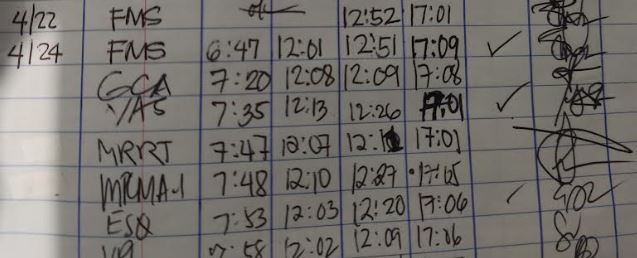 4/22 FMS 12:52 17:01
4/24 FMS 6:47 12:01 12:51 17:09 ✓
GCA 7:20 12:08 12:09 17:08
YAS 7:35 12:13 12:26 17:01 ✓
MRRT 7:47 12:07 17:01
7:48 12:10 12:27
ESQ 7:53 12:03 12:20 17:06
12:02 12:09 17:06